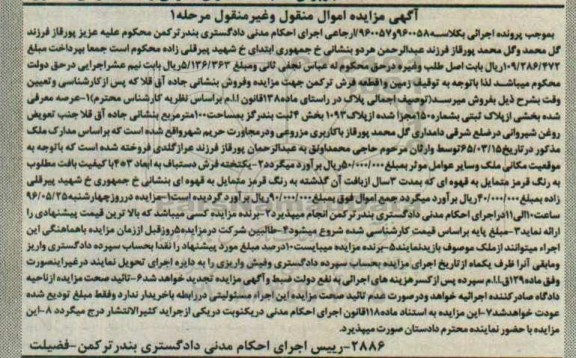 آگهی مزایده اموال منقول وغیرمنقول مرحله۱
بموجب پرونده اجرائی بکلاسه۹۶۰۰۵۸و۹۶۰۰۵۷/ارجاعی اجرای احکام مدنی دادگستری بندرترکمن محکوم علیه عزیز پورقاز فرزند
گل محمد وگل محمد پورقاز فرزند عبدالرحمن هردو بنشانی خ جمهوری ابتدای خ شهید پیرقلی زاده محکوم است جمعا بپرداخت مبلغ
۱۰۹/۲۸۶/۴۷۲ریال بابت اصل طلب وغیره درحق محکوم له عباس نجفی ثانی ومبلغ ۵/۱۳۶/۳۶۲ریال بابت نیم عشراجرایی درحق دولت
محکوم میباشد لذا باتوجه به توقیف زمین واقطعه فرش ترکمن جهت مزایده وفروش بنشانی جاده آق قلا که پس ازکارشناسی وتعیین
وقت بشرح ذیل بفروش میرسد(توصیف اجمالی پلاک در راستای ماده۱۳۸قانون ا.ا.م براساس نظریه کارشناس محترم)۱-عرصه معرفی
شده بخشی ازپلاک ثبتی بشماره۱۵۰۰مجزا شده ازپلاک۱۰۹۳ بخش ۴ثبت بندرگز بمساحت۱۰۰مترمربع بنشانی جاده آق قلا جنب تعویض
روغن شیروانی درضلع شرقی دامداری گل محمد پورقاز باکاربری مزروعی ودرمجاورت حریم شهرواقع شده است که براساس مدارک ملک
مذکور درتاریخ۶۵/۰۳/۱۵توسط وارثان مرحوم حاجی محمدلونق به وعبدالرحمان پورقاز فرزند عرازگلدی فروخته شده است که باتوجه به
موقعیت مکانی ملک وسایر عوامل موثر بمبلغ۵۰/۰۰۰/۰۰۰ریال برآورد میگردد۲-یکتخته فرش دستباف به ابعاد ۳*۴با کیفیت بافت مطلوب
به رنگ قرمز متمایل به قهوه ای که بمدت ۳سال ازبافت آن گذشته به رنگ قرمز متمایل به قهوه ای بنشانی خ جمهوری خ شهید پیرقلی
زاده بمبلغ۴۰/۰۰۰/۰۰۰ریال برآورد میگرددجمع اموال فوق بمبلغ۹۰/۰۰۰/۰۰۰ریال برآورد گردیده است۱-مزایده درروزچهارشنبه۹۶/۰۵/۲۵
ساعت۱۰الی۱۱دراجرای احکام مدنی دادگستری بندرترکمن انجام میپذیرد۲-برنده مزایده کسی میباشد که بالا ترین قیمت پیشنهادی را
ارائه نماید۳-مبلغ پایه براساس قیمت کارشناسی شده شروع میشود۴-طالبین شرکت درمزایده۵روزقبل اززمان مزایده باهماهنگی این
اجراء میتوانند ازملک موصوف بازدیدنمایند۵-برنده مزایده میبایست۱۰درصد مبلغ مورد پیشنهاد را نقدا بحساب سپرده دادگستری واریز
ومابقی آنرا ظرف یکماه ازتاریخ اجرای مزایده بحساب سپرده دادگستری وفیش واریزی را به دایره اجرای تحویل نمایند درغیراینصورت
وفق ماده۱۲۹ق.ا.ا.م سپرده پس ازکسرهزینه های اجرائی به نفع دولت ضبط وآگهی مزایده تجدید خواهد شد۶-تائید صحت مزایده ازناحیه
دادگاه صادرکننده اجرائیه خواهد ودرصورت عدم تائید صحت مزایده این اجراء مسئولیتی دررابطه باخریدار ندارد وفقط مبلغ تودیع شده
عودت خواهدشد۷-این مزایده به استناد ماده۱۱۸قانون اجرای احکام مدنی دریکنوبت دریکی ازجراید کثیرالانتشار درج میگردد ۸-این
مزایده با حضور نماینده محترم دادستان صورت میپذیرد.
۲۸۸۶-رییس اجرای احکام مدنی دادگستری بندرترکمن-فضیلت